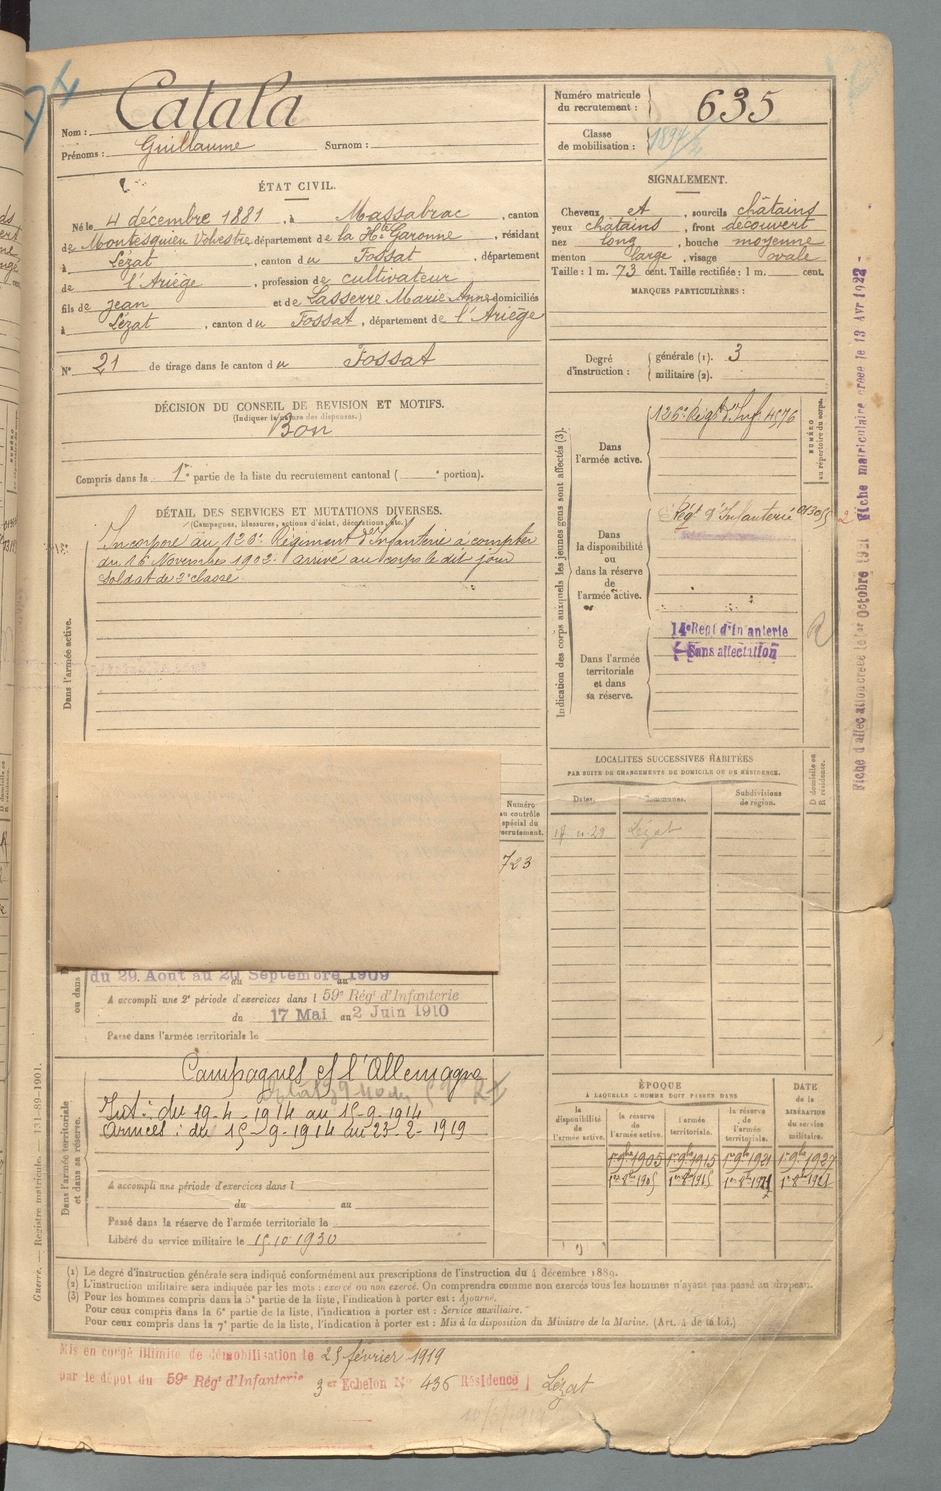 Nom : Catala
Prénoms : Guillaume Surnom :
ÉTAT CIVIL.
Né le 4 décembre 1881, à Massabrac, canton
de Montesquieu Volvestre, département de la Hte Garonne, résidant
à Lézat, canton du Fossat, département
de l'Ariège, profession de cultivateur
fils de Jean et de Lasserre Marie Anne domiciliés
à Lézat, canton du Fossat, département de l'Ariège
N° 21 de tirage dans le canton du Fossat
DÉCISION DU CONSEIL DE REVISION ET MOTIFS.
(Indiquer la nature des dispenses.)
Bon
Compris dans la 1re partie de la liste du recrutement cantonal ( e portion).
DÉTAIL DES SERVICES ET MUTATIONS DIVERSES.
(Campagnes, blessures, actions d'éclat, décorations, etc.)
Dans l'armée active.
Incorporé au 126e Régiment d'Infanterie à compter
du 16 Novembre 1902. arrivé au corps le dit jour
soldat de 2e classe.
Numéro
au contrôle
spécial du
recrutement.
723
ou dans
du 29 Aout au 20 Septembre 1909
A accompli une 2e période d'exercices dans l 59e Régt d'Infanterie
du 17 Mai au 2 Juin 1910
Passé dans l'armée territoriale le
Dans l'armée territoriale
et dans sa réserve.
Campagnes cf l'Allemagne
Int : du 19-4-1914 au 15-9-1914
Armées : du 15-9-1914 au 23-2-1919
A accompli une période d'exercices dans l
du au
Passé dans la réserve de l'armée territoriale le
Libéré du service militaire le 15.10.1930
Numéro matricule
du recrutement : 635
Classe
de mobilisation :
SIGNALEMENT.
Cheveux et, sourcils châtains
yeux châtains, front découvert
nez long, bouche moyenne
menton large, visage ovale
Taille : 1 m. 73 cent. Taille rectifiée : 1 m. cent.
MARQUES PARTICULIÈRES :
Degré
d'instruction :
générale (1). 3
militaire (2).
Indication des corps auxquels les jeunes gens sont affectés (3).
Dans
l'armée active.
126e Régt d'Inf 4576
NUMÉRO
au répertoire du corps.
Dans
la disponibilité
ou
dans la réserve
de
l'armée active.
Régt d'Infanterie
Dans l'armée
territoriale
et dans
sa réserve.
14e Regt d'Infanterie
Sans affectation
R
LOCALITÉS SUCCESSIVES HABITÉES
PAR SUITE DE CHANGEMENTS DE DOMICILE OU DE RÉSIDENCE.
Dates. Communes. Subdivisions
de région.
D domicile ou
R résidence.
Lézat
ÉPOQUE
À LAQUELLE L'HOMME DOIT PASSER DANS
la
disponibilité
de
l'armée active.
la réserve
de
l'armée active.
l'armée
territoriale.
la réserve
de
l'armée
territoriale.
DATE
de la
LIBÉRATION
du service
militaire.
1er 9bre 1905 1er 9bre 1915 1er 9bre 1921 1er 9bre 1927
Fiche d'affectation créée le 1er Octobre 1921 Fiche matriculaire créée le 13 Avr 1922
Guerre. — Registre matricule. — 131-89-1901.
(1) Le degré d'instruction générale sera indiqué conformément aux prescriptions de l'instruction du 4 décembre 1889.
(2) L'instruction militaire sera indiquée par les mots : exercé ou non exercé. On comprendra comme non exercés tous les hommes n'ayant pas passé au drapeau.
(3) Pour les hommes compris dans la 5e partie de la liste, l'indication à porter est : Ajourné.
Pour ceux compris dans la 6e partie de la liste, l'indication à porter est : Service auxiliaire.
Pour ceux compris dans la 7e partie de la liste, l'indication à porter est : Mis à la disposition du Ministre de la Marine. (Art. 4 de la loi.)
Mis en congé illimité de démobilisation le 25 février 1919
par le dépôt du 59e Régt d'Infanterie 3er Echelon N° 436 Résidence Lézat